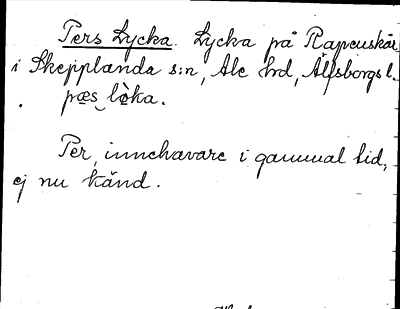 Pers Lycka. Lycka på Rapenskår
i Skepplanda s:n, Ale hd, Älfsborgs l.
. pæs lòka.
Per, innehavare i gammal tid,
ej nu känd.